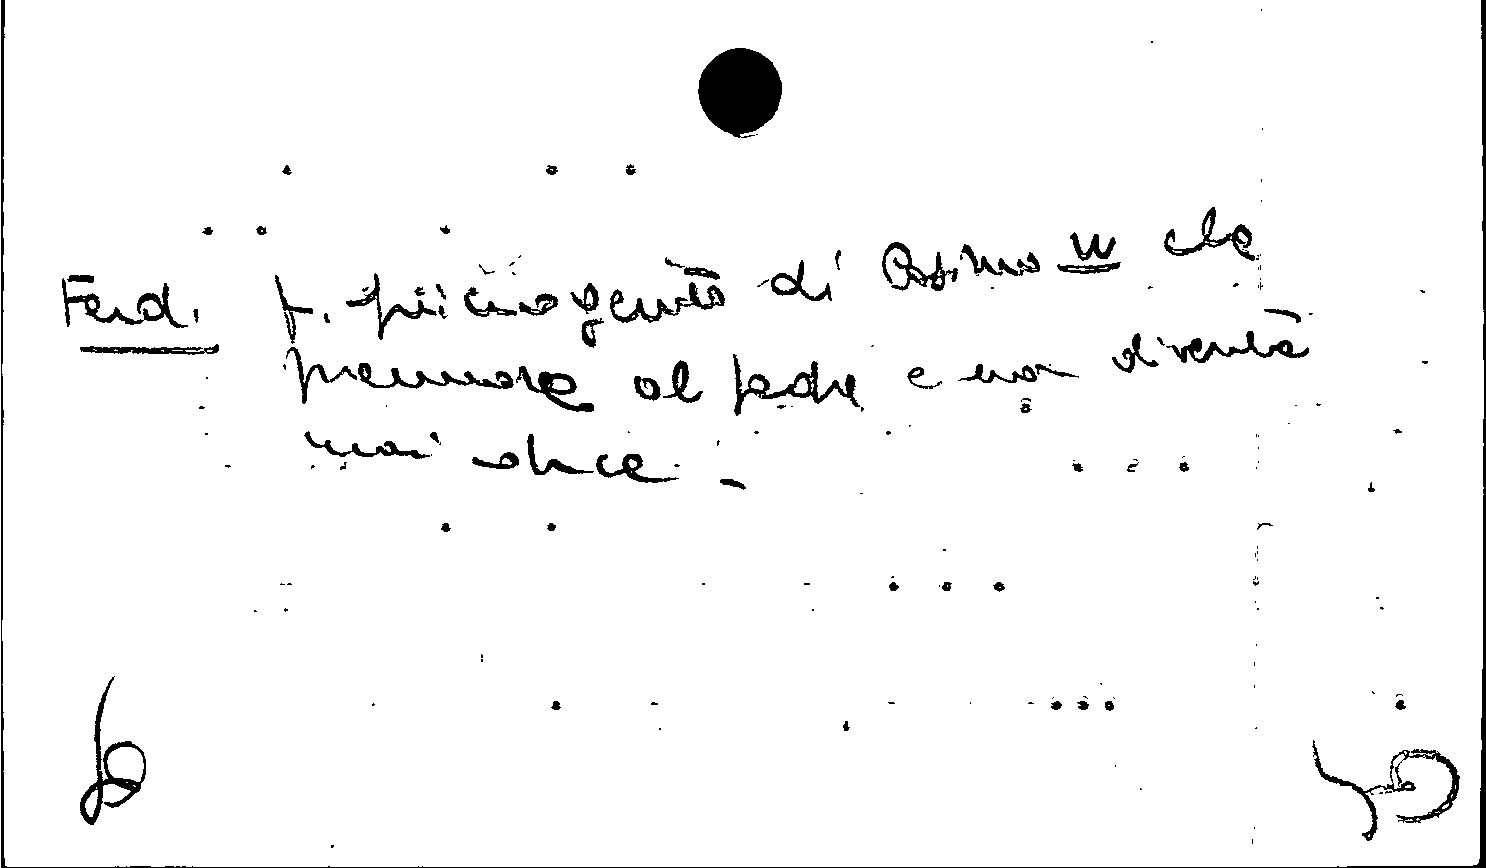 Ferd. f. primogenito di Cosimo III che
premuore al padre e non diventa
mai duca. -